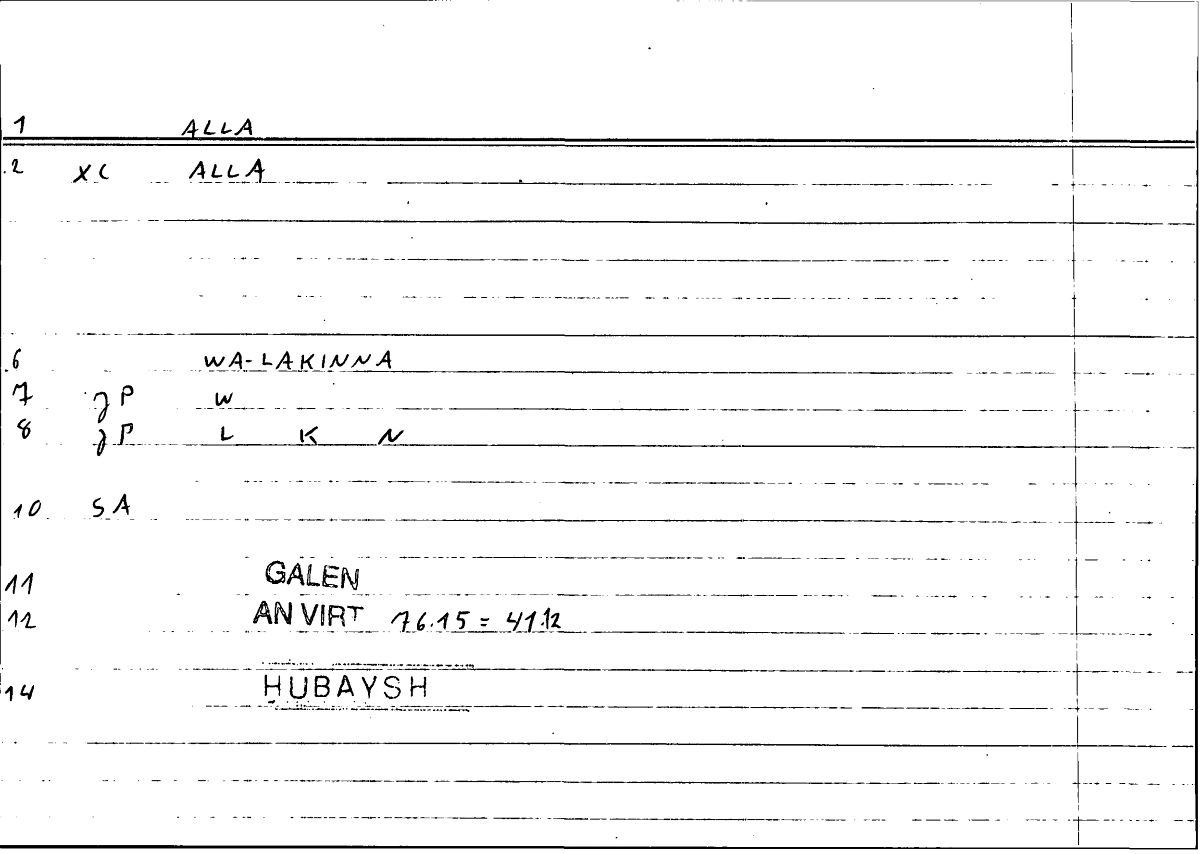 1 ALLA
2 XC ALLA
6 WA-LAKINNA
7 P W
8 P L K N
10 SA
11 GALEN
12 AN VIRT 76.15 = 41.12
14 HUBAYSH